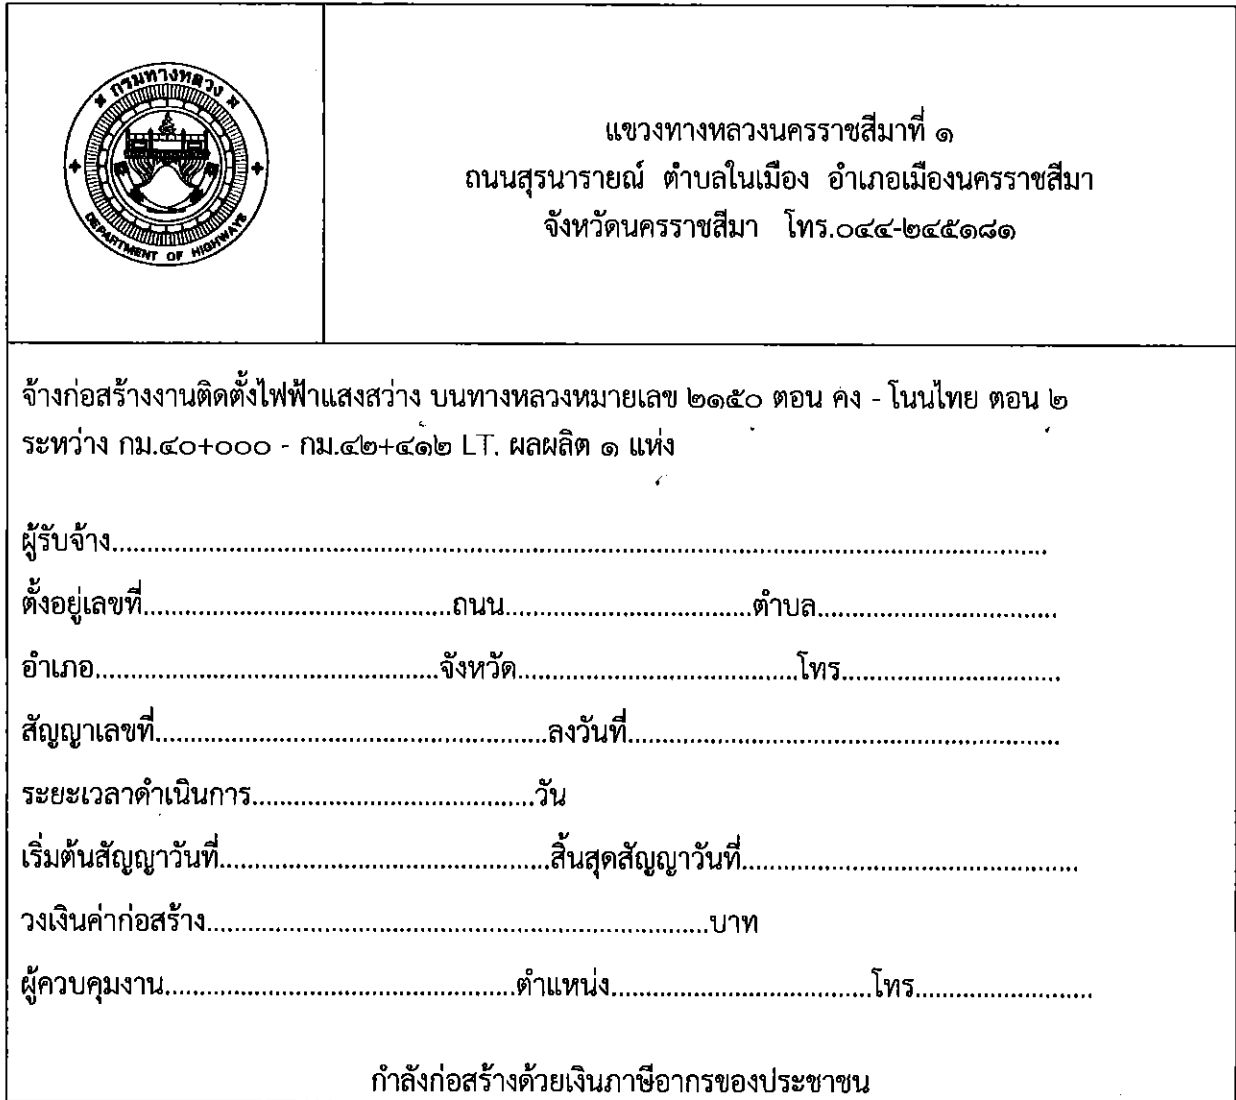 กรมทางหลวง
DEPARTMENT OF HIGHWAYS
แขวงทางหลวงนครราชสีมาที่ ๑
ถนนสุรนารายณ์ ตำบลในเมือง อำเภอเมืองนครราชสีมา
จังหวัดนครราชสีมา โทร.๐๔๔-๒๔๕๑๘๑
จ้างก่อสร้างงานติดตั้งไฟฟ้าแสงสว่าง บนทางหลวงหมายเลข ๒๑๕๐ ตอน คง - โนนไทย ตอน ๒
ระหว่าง กม.๔๐+๐๐๐ - กม.๔๒+๔๑๒ LT. ผลผลิต ๑ แห่ง
ผู้รับจ้าง....................................................................................................
ตั้งอยู่เลขที่........................................ถนน................................ตำบล................................
อำเภอ............................................จังหวัด....................................โทร............................
สัญญาเลขที่..................................................ลงวันที่........................................................
ระยะเวลาดำเนินการ....................................วัน
เริ่มต้นสัญญาวันที่..........................................สิ้นสุดสัญญาวันที่..........................................
วงเงินค่าก่อสร้าง................................................................บาท
ผู้ควบคุมงาน.............................................ตำแหน่ง.................................โทร.......................
กำลังก่อสร้างด้วยเงินภาษีอากรของประชาชน